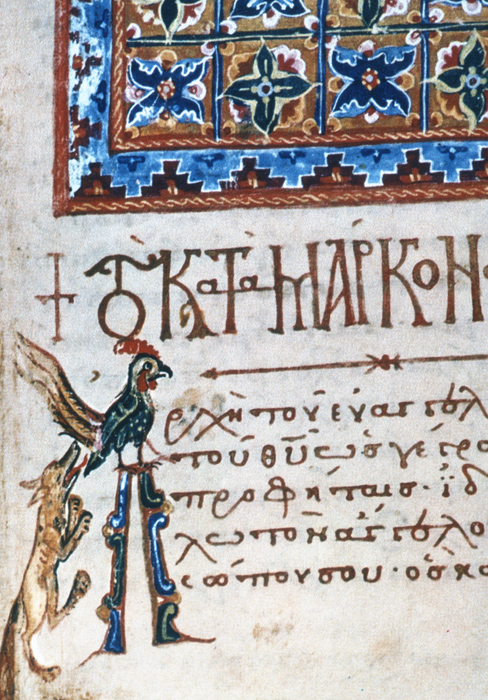 + Τὸ Κατὰ Μάρκον
Ἀρχὴ τοῦ εὐαγγελ
τοῦ θῦ ὡς γέγρα
προφήταις· ἰδ
λω τὸν ἄγγελο
σώπου σου· ὃς κα